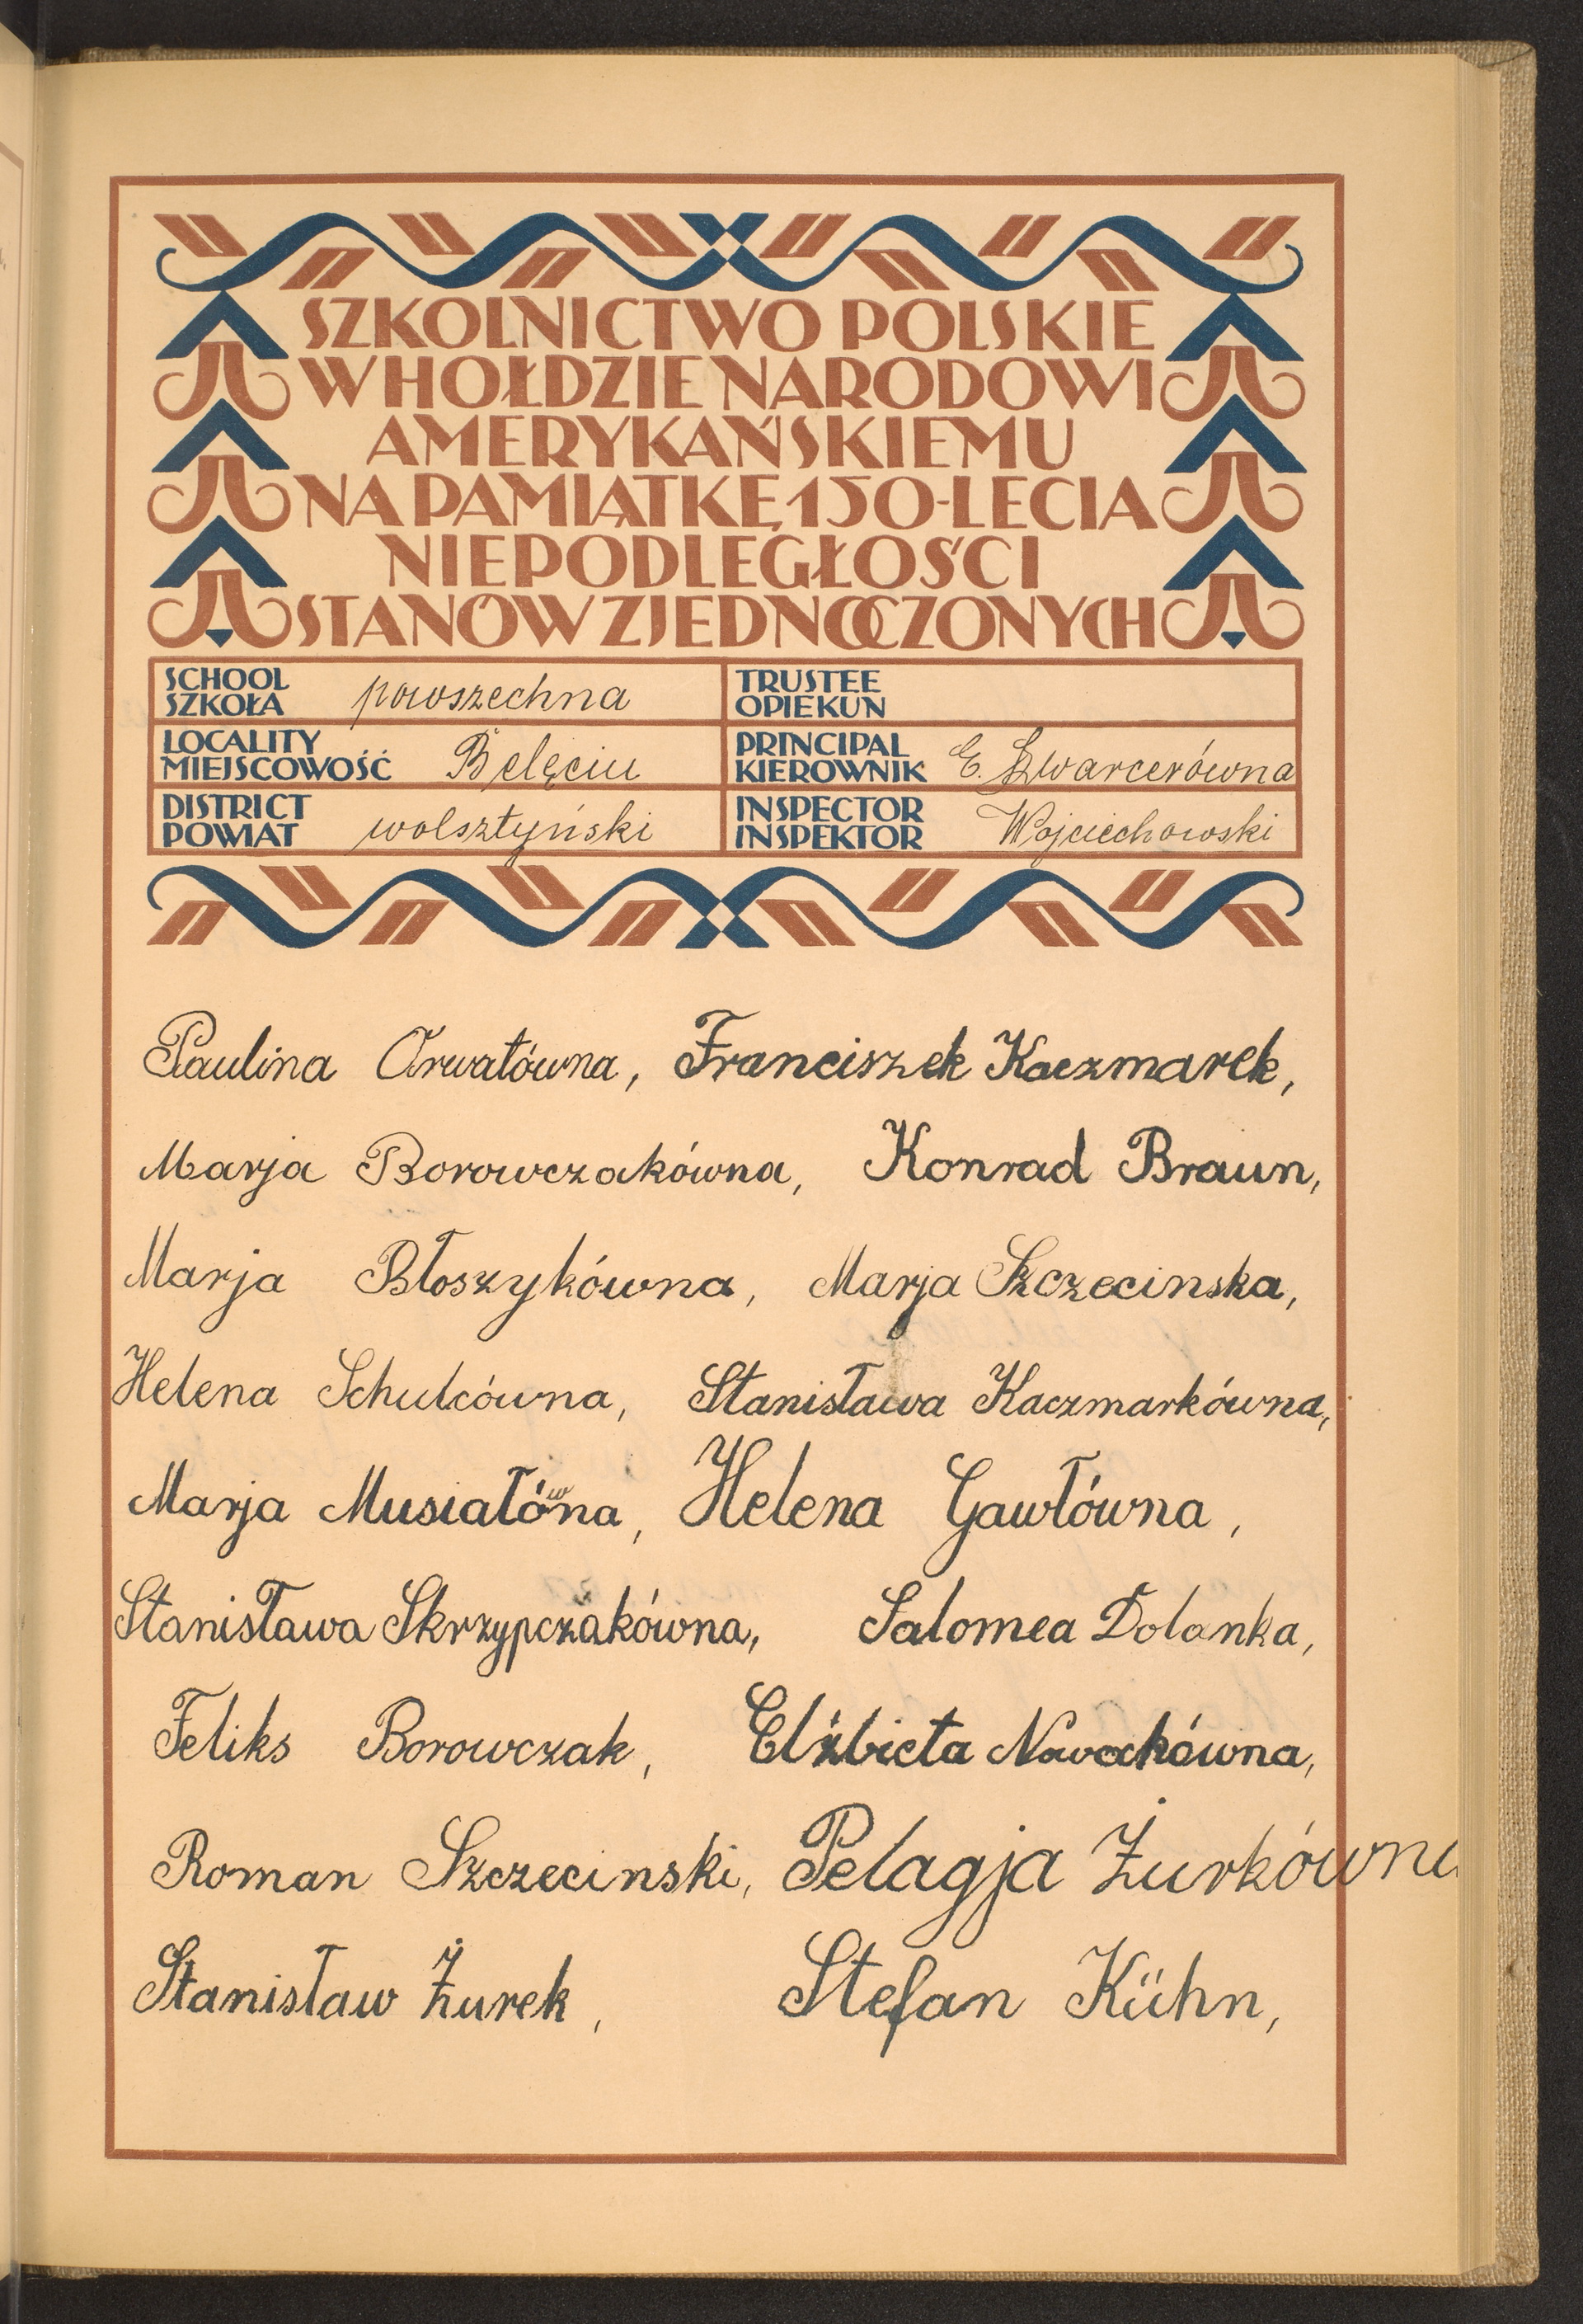 SZKOLNICTWO POLSKIE
W HOŁDZIE NARODOWI
AMERYKAŃSKIEMU
NA PAMIĄTKĘ 150-LECIA
NIEPODLEGŁOŚCI
STANÓW ZJEDNOCZONYCH
SCHOOL
SZKOŁA powszechna
TRUSTEE
OPIEKUN
LOCALITY
MIEJSCOWOŚĆ Belęciu
PRINCIPAL
KIEROWNIK E. Szwarcerówna
DISTRICT
POWIAT wolsztyński
INSPECTOR
INSPEKTOR Wojciechowski
Paulina Orwatówna, Franciszek Kaczmarek,
Marja Borowczakówna, Konrad Braun,
Marja Błoszykówna, Marja Szczecinska,
Helena Schulcówna, Stanisława Kaczmarkówna,
Marja Musiałówna, Helena Gawłówna,
Stanisława Skrzypczakówna, Salomea Dolanka,
Feliks Borowczak, Elżbieta Nowackówna,
Roman Szczecinski, Pelagja Żurkówna
Stanisław Żurek, Stefan Kühn,